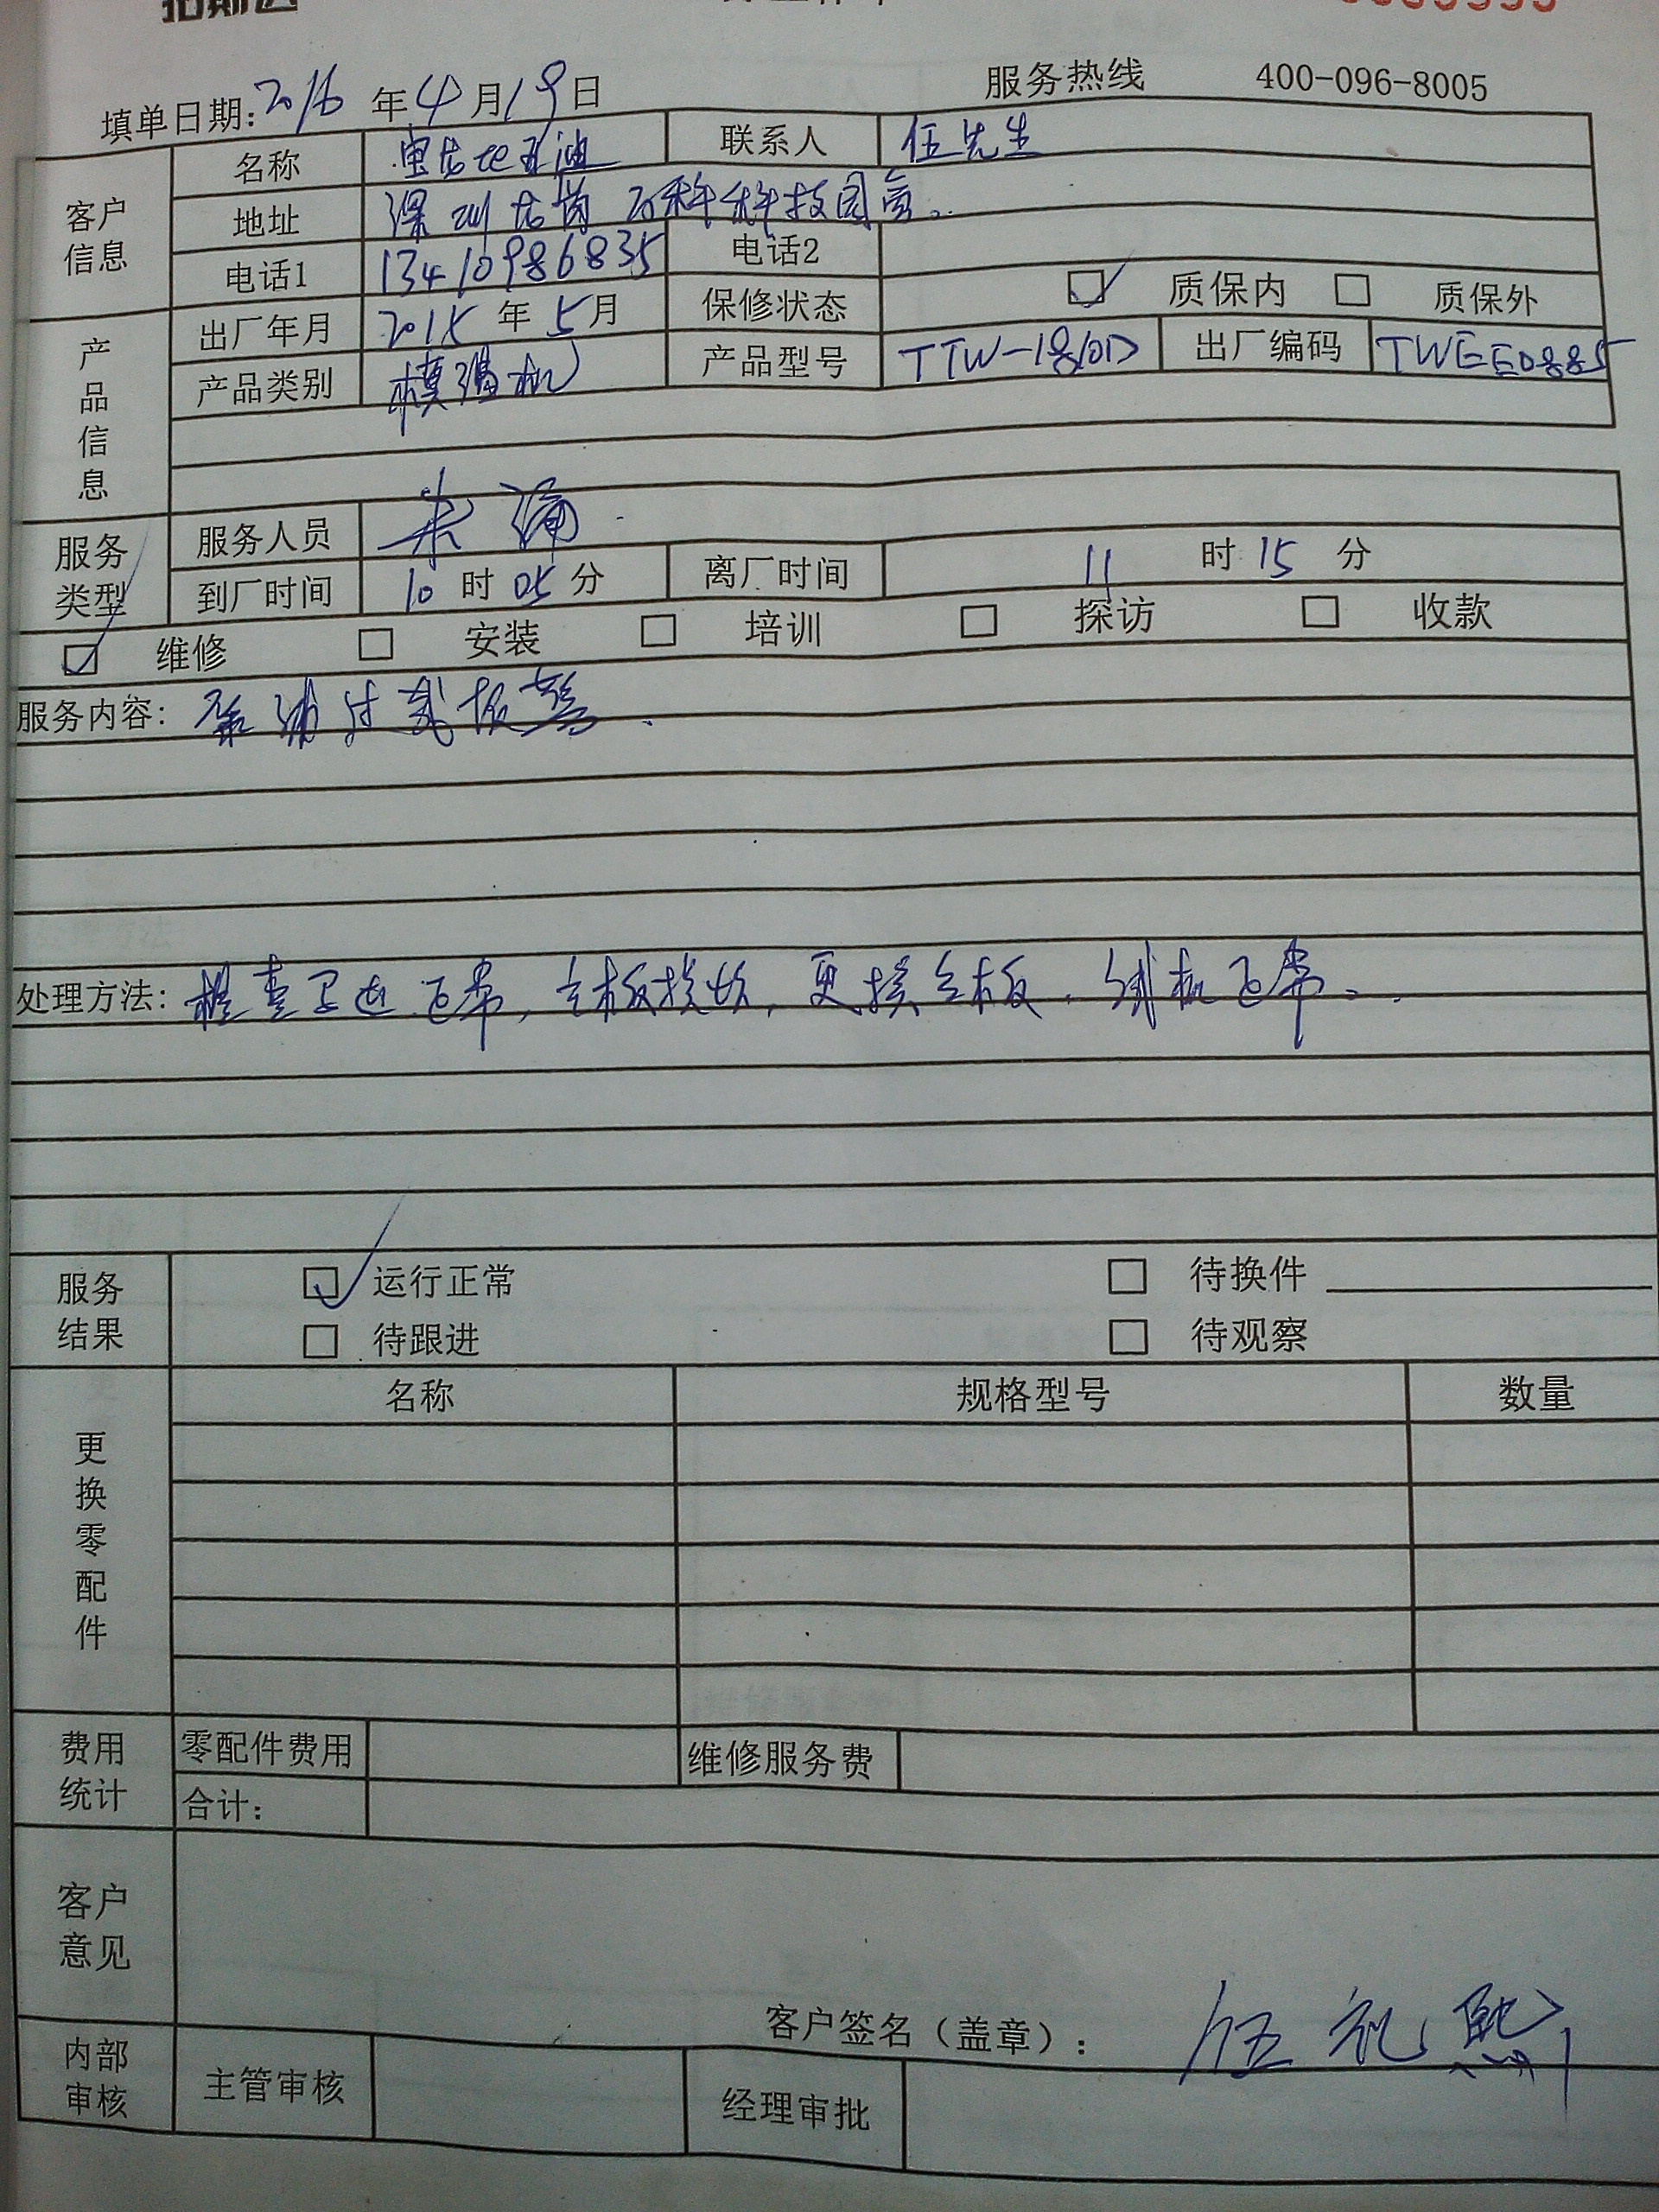 拓斯达
填单日期:2016年4月19日 服务热线 400-096-8005
客户信息
名称 联系人 伍先生
地址 深圳
电话1 13410986835 电话2
产品信息
出厂年月 2015年5月 保修状态 质保内 质保外
产品类别 模温机 产品型号 TTW-1810D 出厂编码 TWEE0885
服务类型
服务人员 朱
到厂时间 10时05分 离厂时间 11时15分
维修 安装 培训 探访 收款
服务内容: 泵浦过载报警
处理方法: 检查 正常,主板损坏,更换主板. 机正常。
服务结果
运行正常 待换件
待跟进 待观察
更换零配件
名称 规格型号 数量
费用统计
零配件费用 维修服务费
合计:
客户意见
客户签名(盖章): 伍礼熙
内部审核 主管审核 经理审批